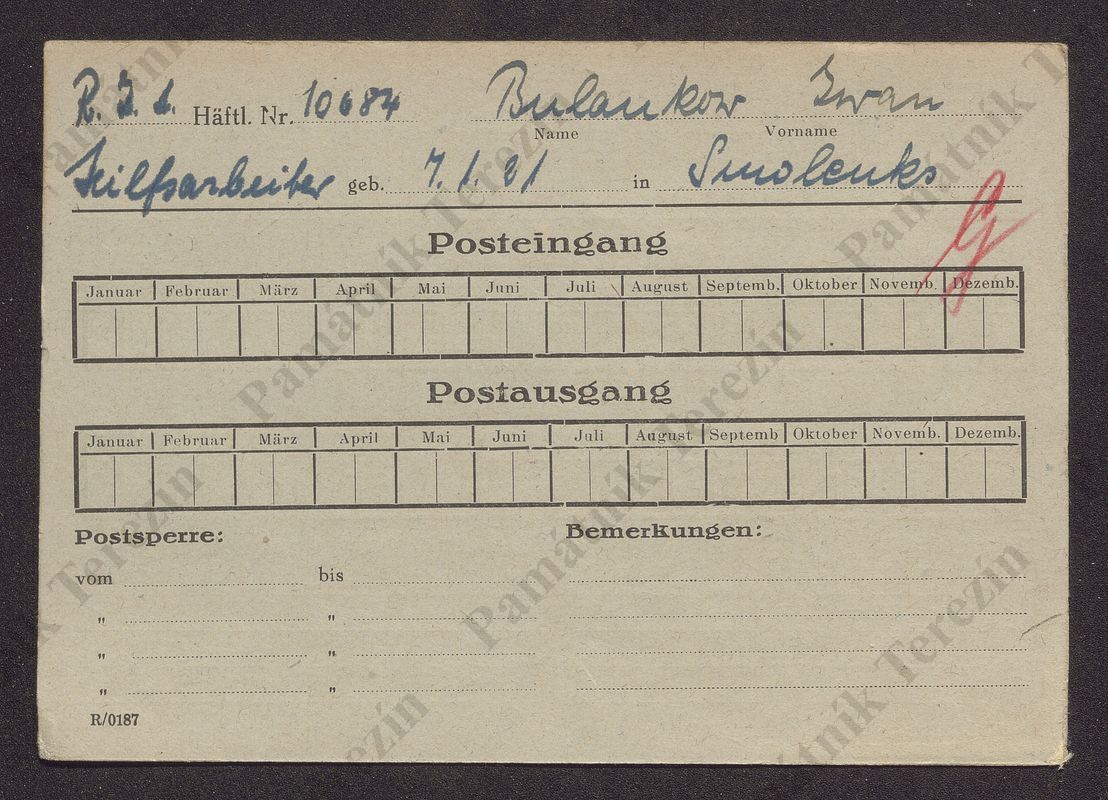 R. Z. L. Häftl. Nr. 10684 Bulankow Iwan
Name Vorname
Hilfsarbeiter geb. 7. 1. 21 in Smolenks
Posteingang
Januar Februar März April Mai Juni Juli August Septemb. Oktober Novemb. Dezemb.
Postausgang
Januar Februar März April Mai Juni Juli August Septemb Oktober Novemb. Dezemb.
Postsperre: Bemerkungen:
vom bis
" "
" "
" "
R/0187
Památník Terezín